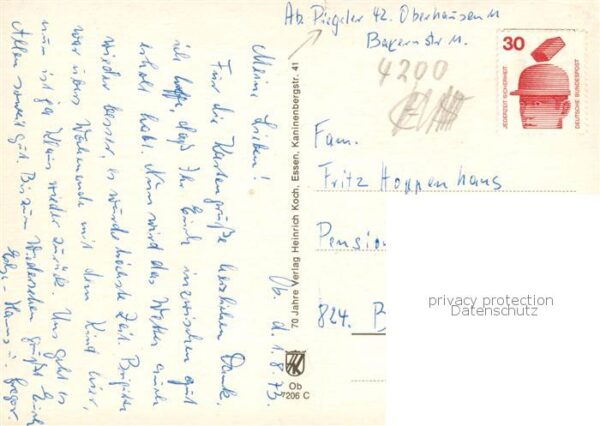 Ob. d. 1.8.73.
Meine Lieben!
Für die Kartengrüße herzlichen Dank.
ich hoffe daß Ihr Euch inzwischen gut
erholt habt. Nun wird das Wetter auch
wieder besser, es wurde höchste Zeit. Brigitte
war übers Wochenende mit dem Kind hier,
nun ist ja Klaus wieder zurück. Uns geht es
Allen soweit gut. Bis zum Wiedersehen grüßt Euch
Hans u. Gregor.
70 Jahre Verlag Heinrich Koch, Essen, Kaninenbergstr. 41
Ob
7206 C
Abs. Piegeler 42. Oberhausen 11
Bayernstr 11.
4200
30
JEDERZEIT SICHERHEIT
DEUTSCHE BUNDESPOST
Fam.
Fritz Hoppenhaus
Pension
824. B
privacy protection
Datenschutz